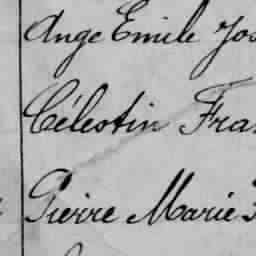 Ange Emile Jos
Célestin Fra
Pierre Marie